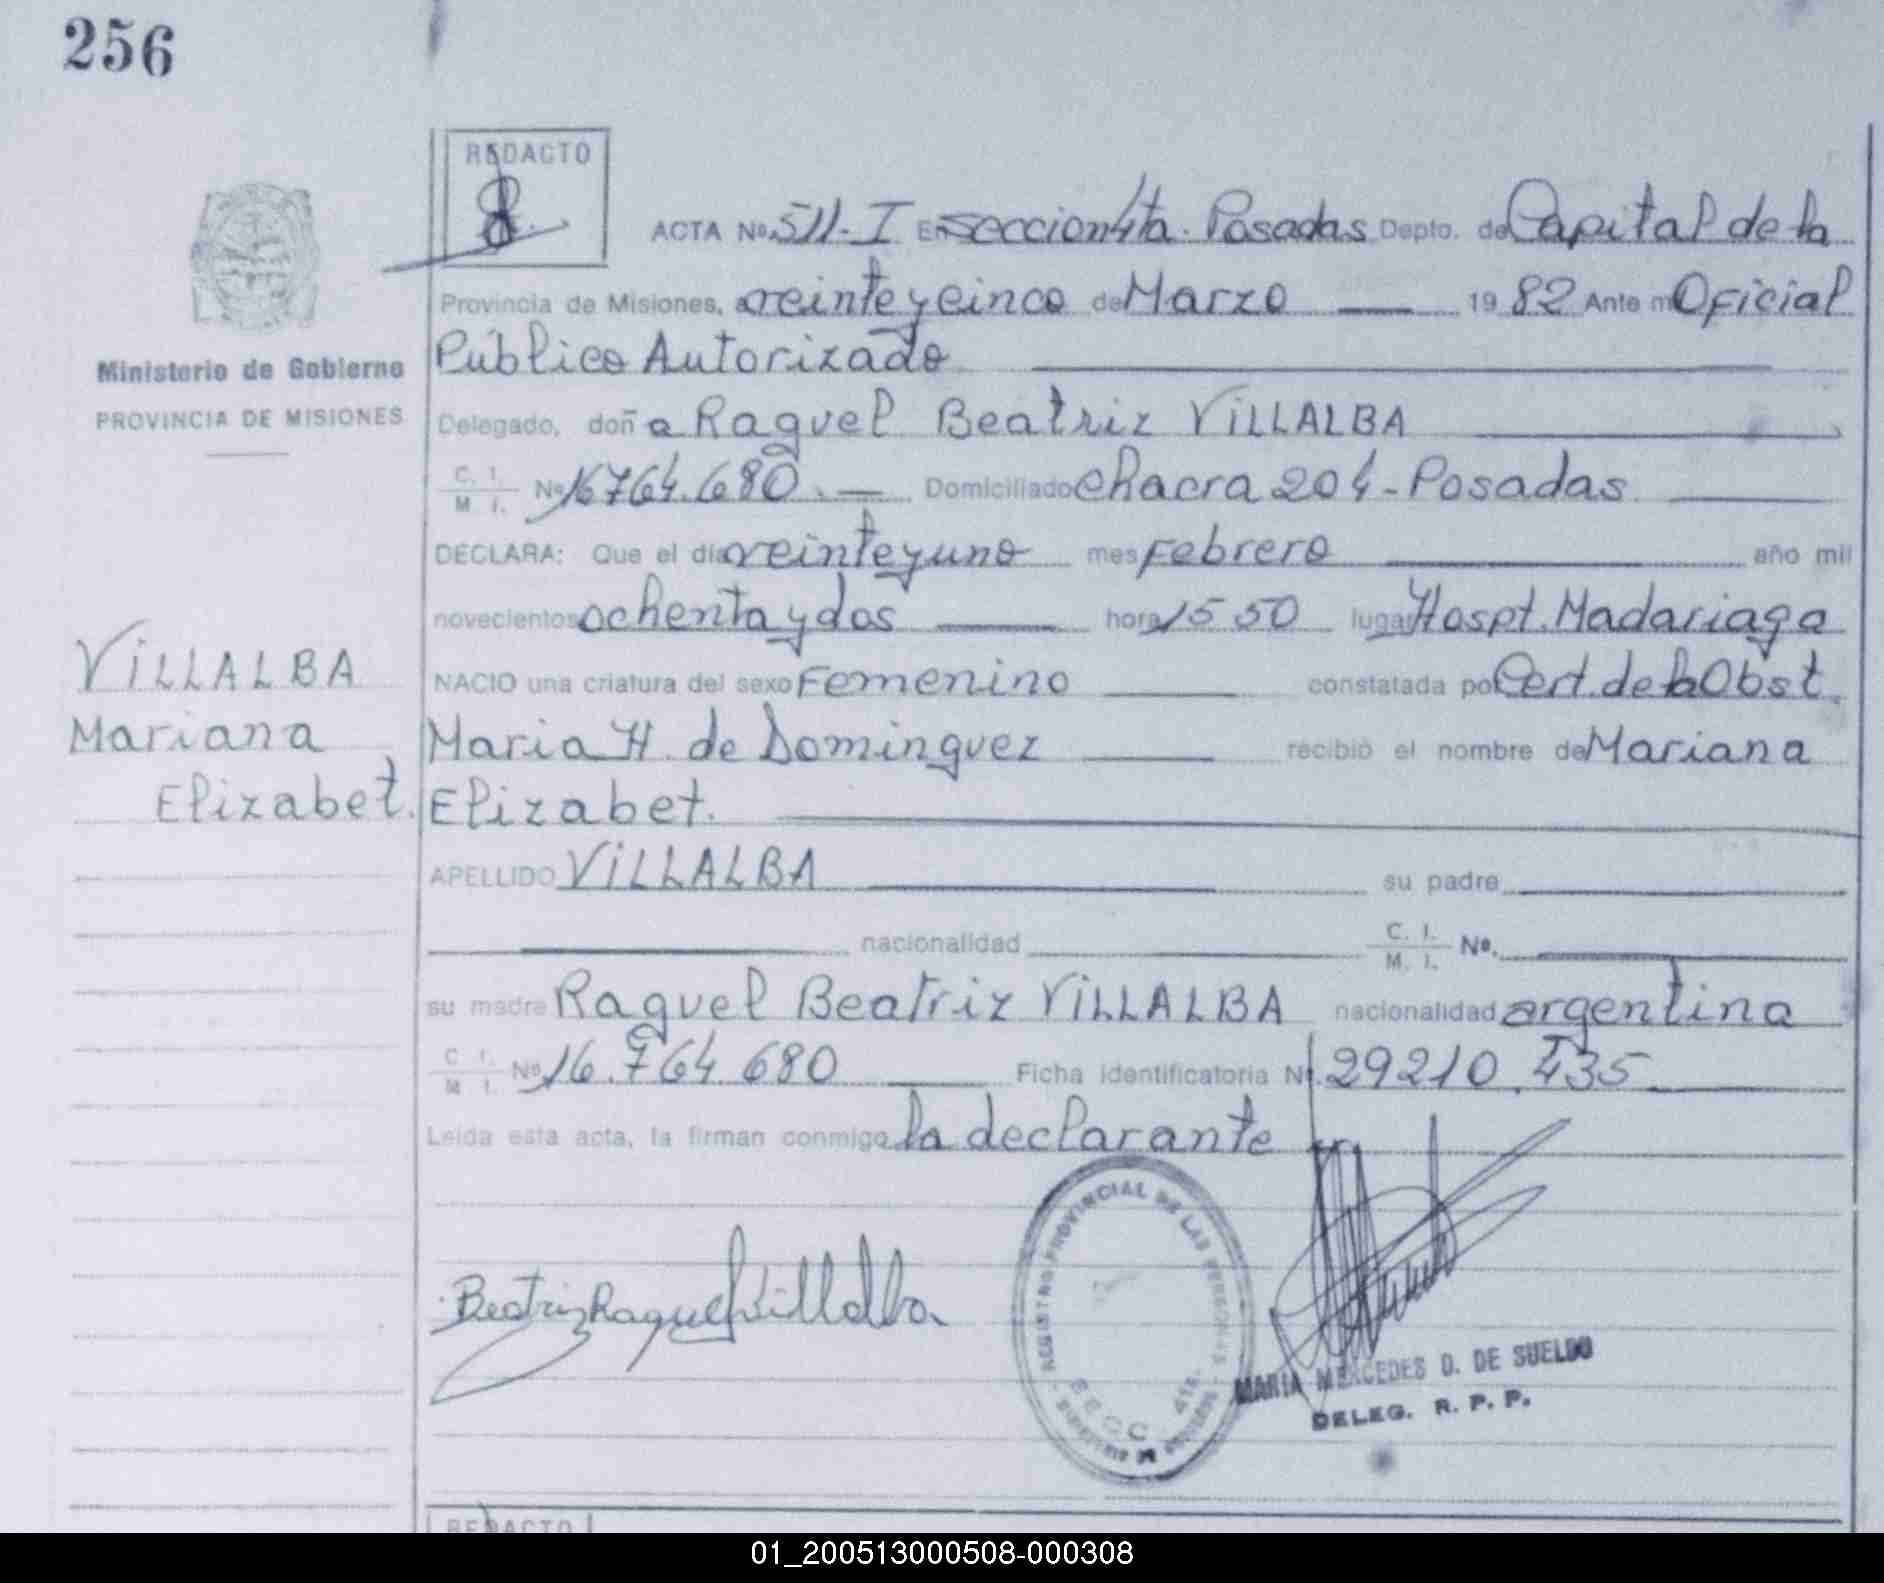 256
REDACTO
ACTA Nº 511-I En seccion 4ta. Posadas Depto. de Capital de la
Provincia de Misiones, a veinte y cinco de Marzo 1982 Ante mi Oficial
Público Autorizado
Ministerio de Gobierno
PROVINCIA DE MISIONES
Delegado, doña Raquel Beatriz VILLALBA
C. I. / M. I. Nº 16764.680. Domiciliado chacra 204 - Posadas
DECLARA: Que el día veinte y uno mes Febrero año mil
novecientos ochenta y dos hora 15 50 lugar Hospt. Madariaga
NACIO una criatura del sexo Femenino constatada por Cert. de la Obst.
Maria H. de Dominguez recibió el nombre de Mariana
Elizabet.
VILLALBA
Mariana
Elizabet.
APELLIDO VILLALBA su padre
nacionalidad C. I. / M. I. Nº.
su madre Raquel Beatriz VILLALBA nacionalidad argentina
C. I. / M. I. Nº 16.764.680 Ficha identificatoria Nº. 29210.435
Leida esta acta, la firman conmigo la declarante
Beatriz Raquel Villalba
REGISTRO PROVINCIAL DE LAS PERSONAS
SECC 4ta.
MARIA MERCEDES D. DE SUELDO
DELEG. R. P. P.
REDACTO
01_200513000508-000308